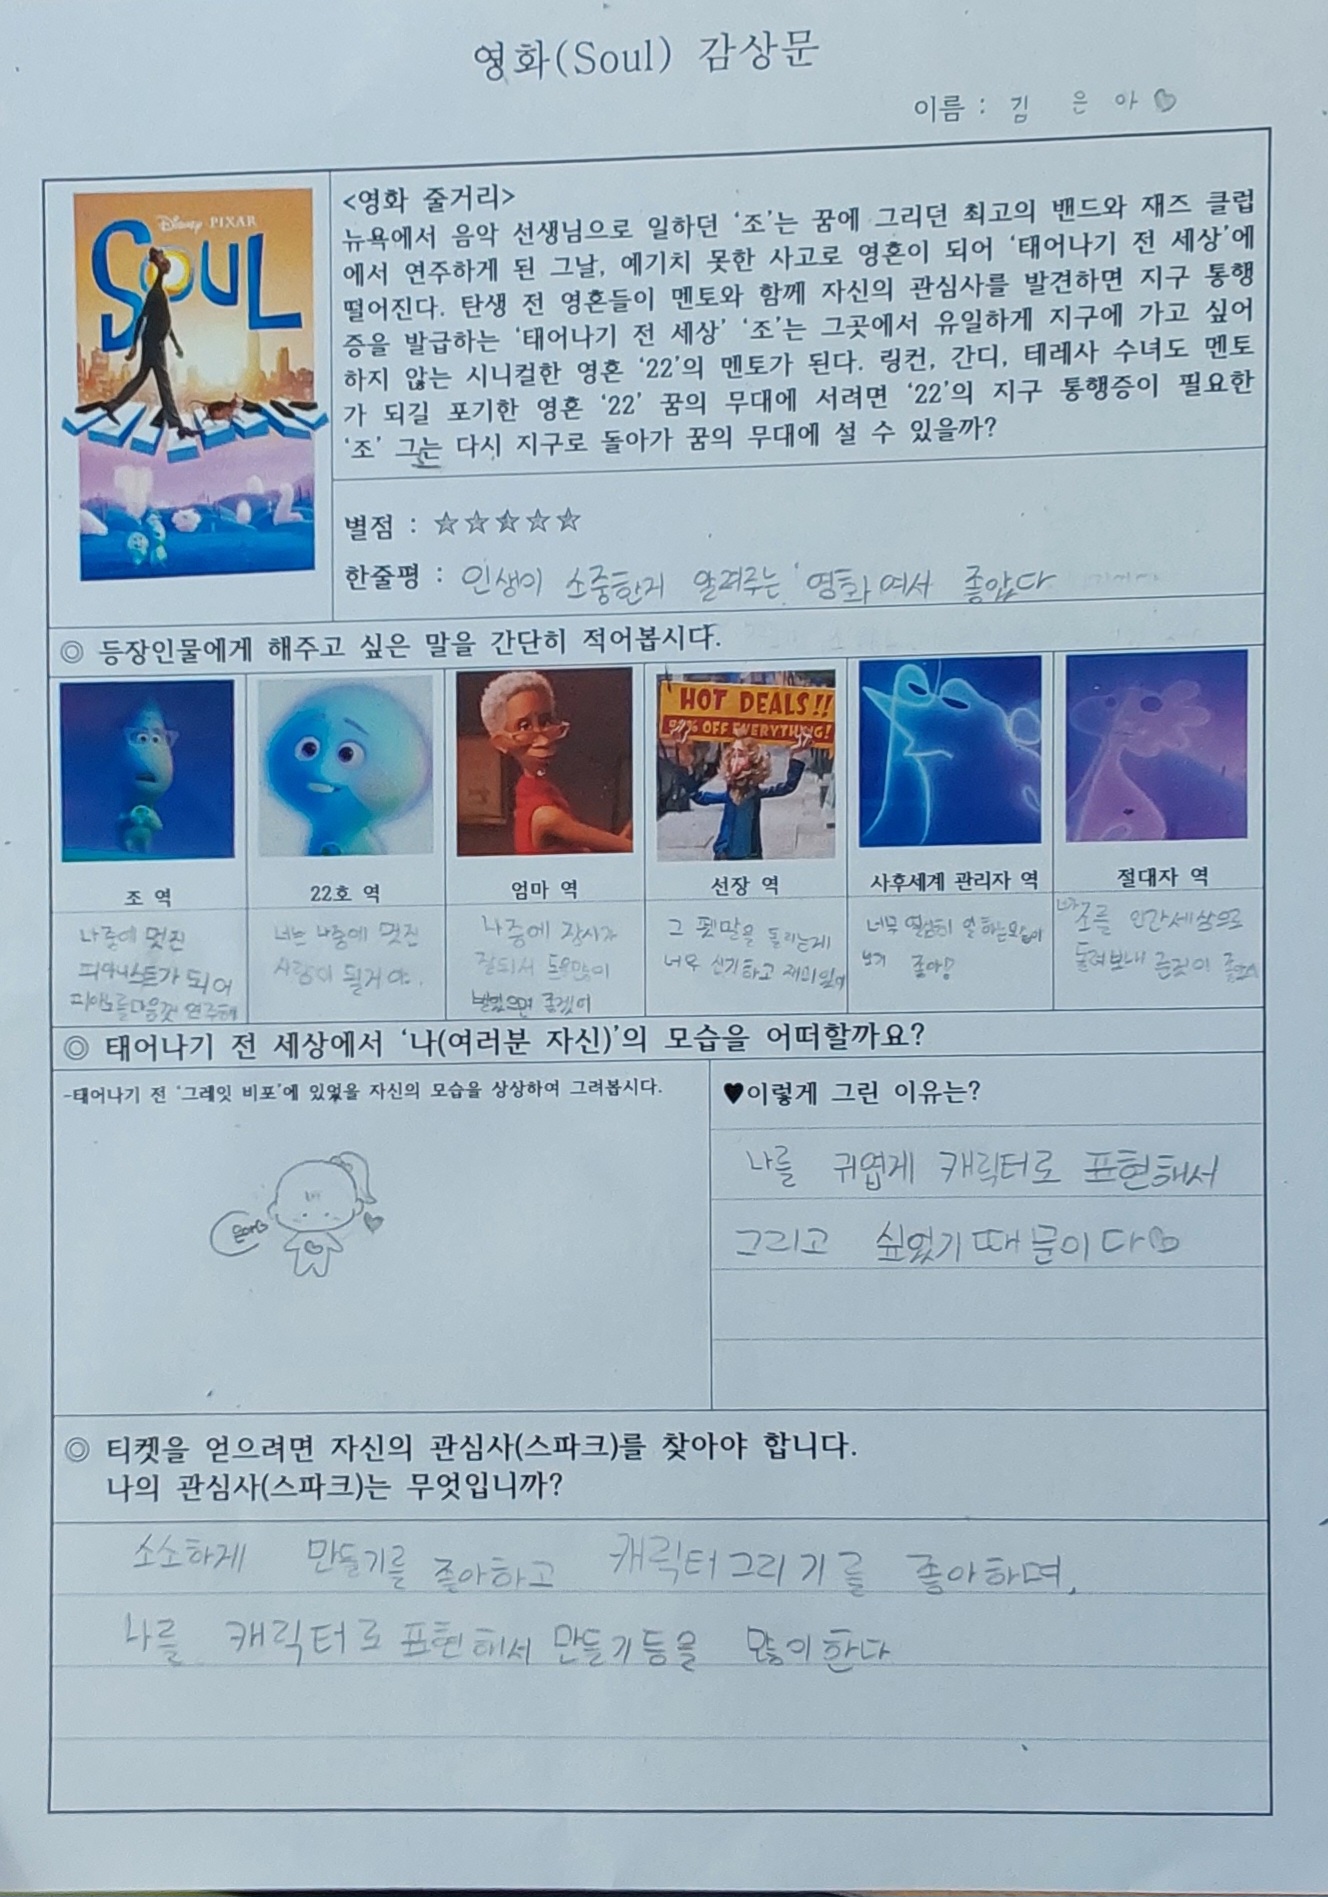 영화(Soul) 감상문
이름 : 김 은 아♡
Disney PIXAR
SOUL
<영화 줄거리>
뉴욕에서 음악 선생님으로 일하던 ‘조’는 꿈에 그리던 최고의 밴드와 재즈 클럽
에서 연주하게 된 그날, 예기치 못한 사고로 영혼이 되어 ‘태어나기 전 세상’에
떨어진다. 탄생 전 영혼들이 멘토와 함께 자신의 관심사를 발견하면 지구 통행
증을 발급하는 ‘태어나기 전 세상’ ‘조’는 그곳에서 유일하게 지구에 가고 싶어
하지 않는 시니컬한 영혼 ‘22’의 멘토가 된다. 링컨, 간디, 테레사 수녀도 멘토
가 되길 포기한 영혼 ‘22’ 꿈의 무대에 서려면 ‘22’의 지구 통행증이 필요한
‘조’ 그는 다시 지구로 돌아가 꿈의 무대에 설 수 있을까?
별점 : ☆☆☆☆☆
한줄평 : 인생이 소중한지 알려주는 영화여서 좋았다
◎ 등장인물에게 해주고 싶은 말을 간단히 적어봅시다.
HOT DEALS!!
% OFF EVERYTHING!
조 역
22호 역
엄마 역
선장 역
사후세계 관리자 역
절대자 역
나중에 멋진
피아니스트가 되어
피아노를 마음껏 연주해
너는 나중에 멋진
사람이 될거야.
나중에 장사가
잘되서 돈을많이
벌었으면 좋겠어
그 푯말을 돌리는게
너무 신기하고 재미있어
너무 열심히 일 하는모습이
보기 좋아!
조를 인간세상으로
돌려보내 준것이 좋았어
◎ 태어나기 전 세상에서 ‘나(여러분 자신)’의 모습을 어떠할까요?
-태어나기 전 ‘그레잇 비포’에 있었을 자신의 모습을 상상하여 그려봅시다.
은아
♥이렇게 그린 이유는?
나를 귀엽게 캐릭터로 표현해서
그리고 싶었기 때문이다♡
◎ 티켓을 얻으려면 자신의 관심사(스파크)를 찾아야 합니다.
나의 관심사(스파크)는 무엇입니까?
소소하게 만들기를 좋아하고 캐릭터그리기를 좋아하며,
나를 캐릭터로 표현해서 만들기등을 많이한다